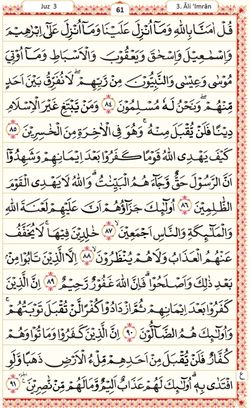 Juz 3
61
3. Âli 'Imrân
قُلْ اٰمَنَّا بِاللّٰهِ وَمَآ اُنْزِلَ عَلَيْنَا وَمَآ اُنْزِلَ عَلٰٓى اِبْرٰهِيْمَ
وَاِسْمٰعِيْلَ وَاِسْحٰقَ وَيَعْقُوْبَ وَالْاَسْبَاطِ وَمَآ اُوْتِيَ
مُوْسٰى وَعِيْسٰى وَالنَّبِيُّوْنَ مِنْ رَّبِّهِمْۖ لَا نُفَرِّقُ بَيْنَ اَحَدٍ
مِّنْهُمْۖ وَنَحْنُ لَهٗ مُسْلِمُوْنَ ٨٤ وَمَنْ يَّبْتَغِ غَيْرَ الْاِسْلَامِ
دِيْنًا فَلَنْ يُّقْبَلَ مِنْهُۚ وَهُوَ فِى الْاٰخِرَةِ مِنَ الْخٰسِرِيْنَ ٨٥
كَيْفَ يَهْدِى اللّٰهُ قَوْمًا كَفَرُوْا بَعْدَ اِيْمَانِهِمْ وَشَهِدُوْٓا
اَنَّ الرَّسُوْلَ حَقٌّ وَّجَآءَهُمُ الْبَيِّنٰتُۗ وَاللّٰهُ لَا يَهْدِى الْقَوْمَ
الظّٰلِمِيْنَ ٨٦ اُولٰۤىِٕكَ جَزَآؤُهُمْ اَنَّ عَلَيْهِمْ لَعْنَةَ اللّٰهِ
وَالْمَلٰۤىِٕكَةِ وَالنَّاسِ اَجْمَعِيْنَ ٨٧ خٰلِدِيْنَ فِيْهَاۚ لَا يُخَفَّفُ
عَنْهُمُ الْعَذَابُ وَلَا هُمْ يُنْظَرُوْنَ ٨٨ اِلَّا الَّذِيْنَ تَابُوْا مِنْۢ
بَعْدِ ذٰلِكَ وَاَصْلَحُوْاۗ فَاِنَّ اللّٰهَ غَفُوْرٌ رَّحِيْمٌ ٨٩ اِنَّ الَّذِيْنَ
كَفَرُوْا بَعْدَ اِيْمَانِهِمْ ثُمَّ ازْدَادُوْا كُفْرًا لَّنْ تُقْبَلَ تَوْبَتُهُمْۚ
وَاُولٰۤىِٕكَ هُمُ الضَّآلُّوْنَ ٩٠ اِنَّ الَّذِيْنَ كَفَرُوْا وَمَاتُوْا وَهُمْ
كُفَّارٌ فَلَنْ يُّقْبَلَ مِنْ اَحَدِهِمْ مِّلْءُ الْاَرْضِ ذَهَبًا وَّلَوِ
افْتَدٰى بِهٖۗ اُولٰۤىِٕكَ لَهُمْ عَذَابٌ اَلِيْمٌ وَّمَا لَهُمْ مِّنْ نّٰصِرِيْنَ ٩١
ع